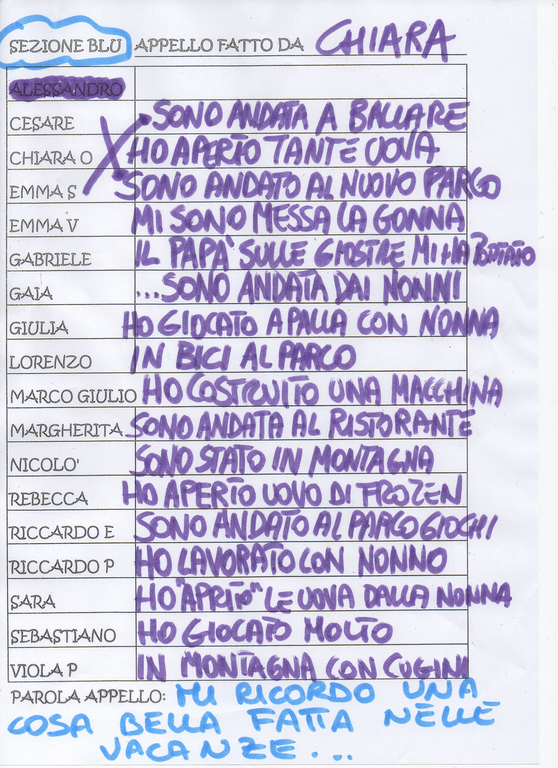 SEZIONE BLU APPELLO FATTO DA CHIARA
ALESSANDRO
CESARE SONO ANDATA A BALLARE
CHIARA O HO APERTO TANTE UOVA
EMMA S SONO ANDATO AL NUOVO PARCO
EMMA V MI SONO MESSA LA GONNA
GABRIELE IL PAPA' SULLE GIOSTRE MI HA BUTTATO
GAIA ...SONO ANDATA DAI NONNI
GIULIA HO GIOCATO A PALLA CON NONNA
LORENZO IN BICI AL PARCO
MARCO GIULIO HO COSTRUITO UNA MACCHINA
MARGHERITA SONO ANDATA AL RISTORANTE
NICOLO' SONO STATO IN MONTAGNA
REBECCA HO APERTO UOVO DI FROZEN
RICCARDO E SONO ANDATO AL PARCO GIOCHI
RICCARDO P HO LAVORATO CON NONNO
SARA HO "APRITO" LE UOVA DALLA NONNA
SEBASTIANO HO GIOCATO MOLTO
VIOLA P IN MONTAGNA CON CUGINI
PAROLA APPELLO: MI RICORDO UNA
COSA BELLA FATTA NELLE
VACANZE...